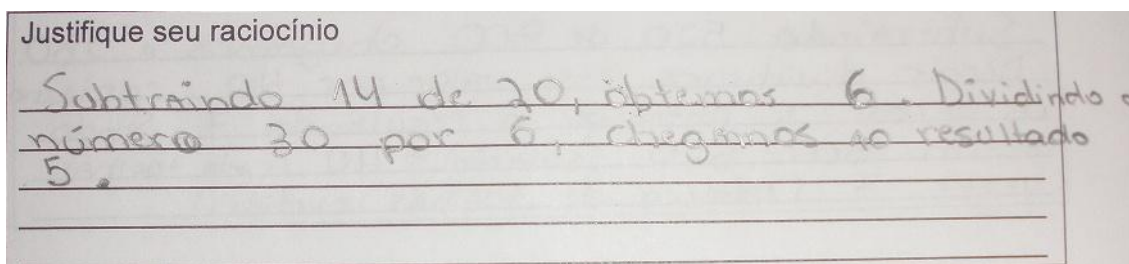 Justifique seu raciocínio
Subtraindo 14 de 20, obtemos 6. Dividindo o
número 30 por 6, chegamos ao resultado
5.